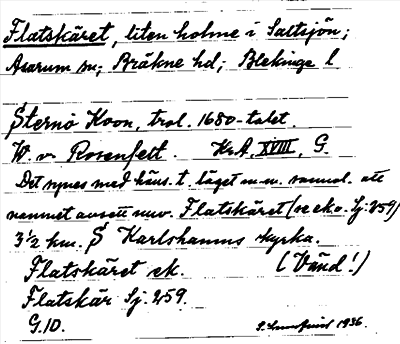 Flatskäret, liten holme i Saltsjön;
Asarum sn; Bräkne hd; Blekinge l
Sternö Koon, trol. 1680-talet.
W. v. Rosenfelt. KrA XVIII, G.
Det synes med häns. t. läget m.m. sannol. att
namnet avsett nuv. Flatskäret (se eko. Sj:259)
3½ km. S Karlshamns kyrka.
Flatskäret ek. (Vänd!)
Flatskär Sj. 259.
G.10. 1936.